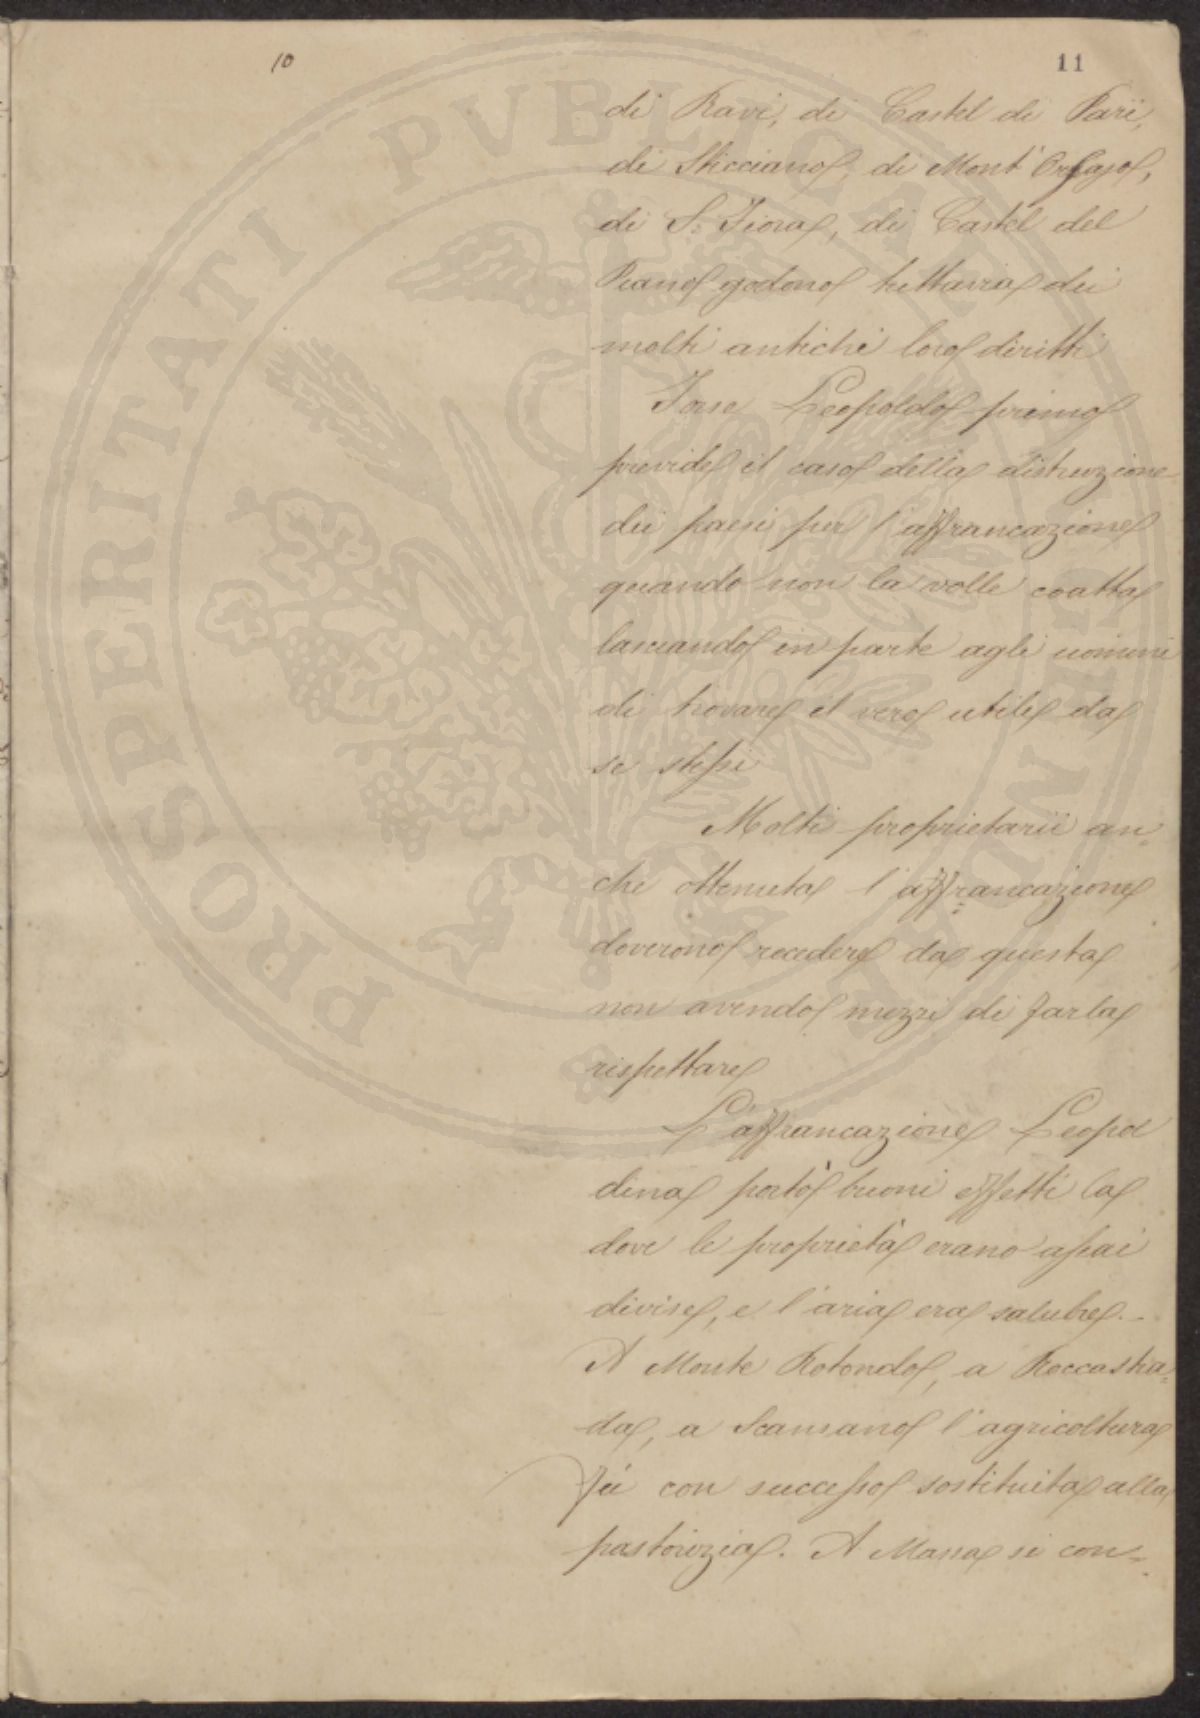 10
11
di Ravi, di Castel di Pari,
di Sticciano, di Mont'Orgajo,
di S. Fiora, di Castel del
Piano godono tuttavia dei
molti antichi loro diritti
Forse Leopoldo primo
previde il caso della distruzione
dei paesi per l'affrancazione
quando non la volle coatta
lasciando in parte agli uomini
di trovare il vero utile da
se stessi
Molti proprietarii an=
che ottenuta l'affrancazione
doverono recedere da questa
non avendo mezzi di farla
rispettare
L'affrancazione Leopol
dina portò buoni effetti la
dove le proprietà erano assai
divise, e l'aria era salubre.-
A Monte Rotondo, a Roccastra=
da, a Scansano l'agricoltura
fu con successo sostituita alla
pastorizia. A Massa si con=
PROSPERITATI PVBLICAE AVGENDAE